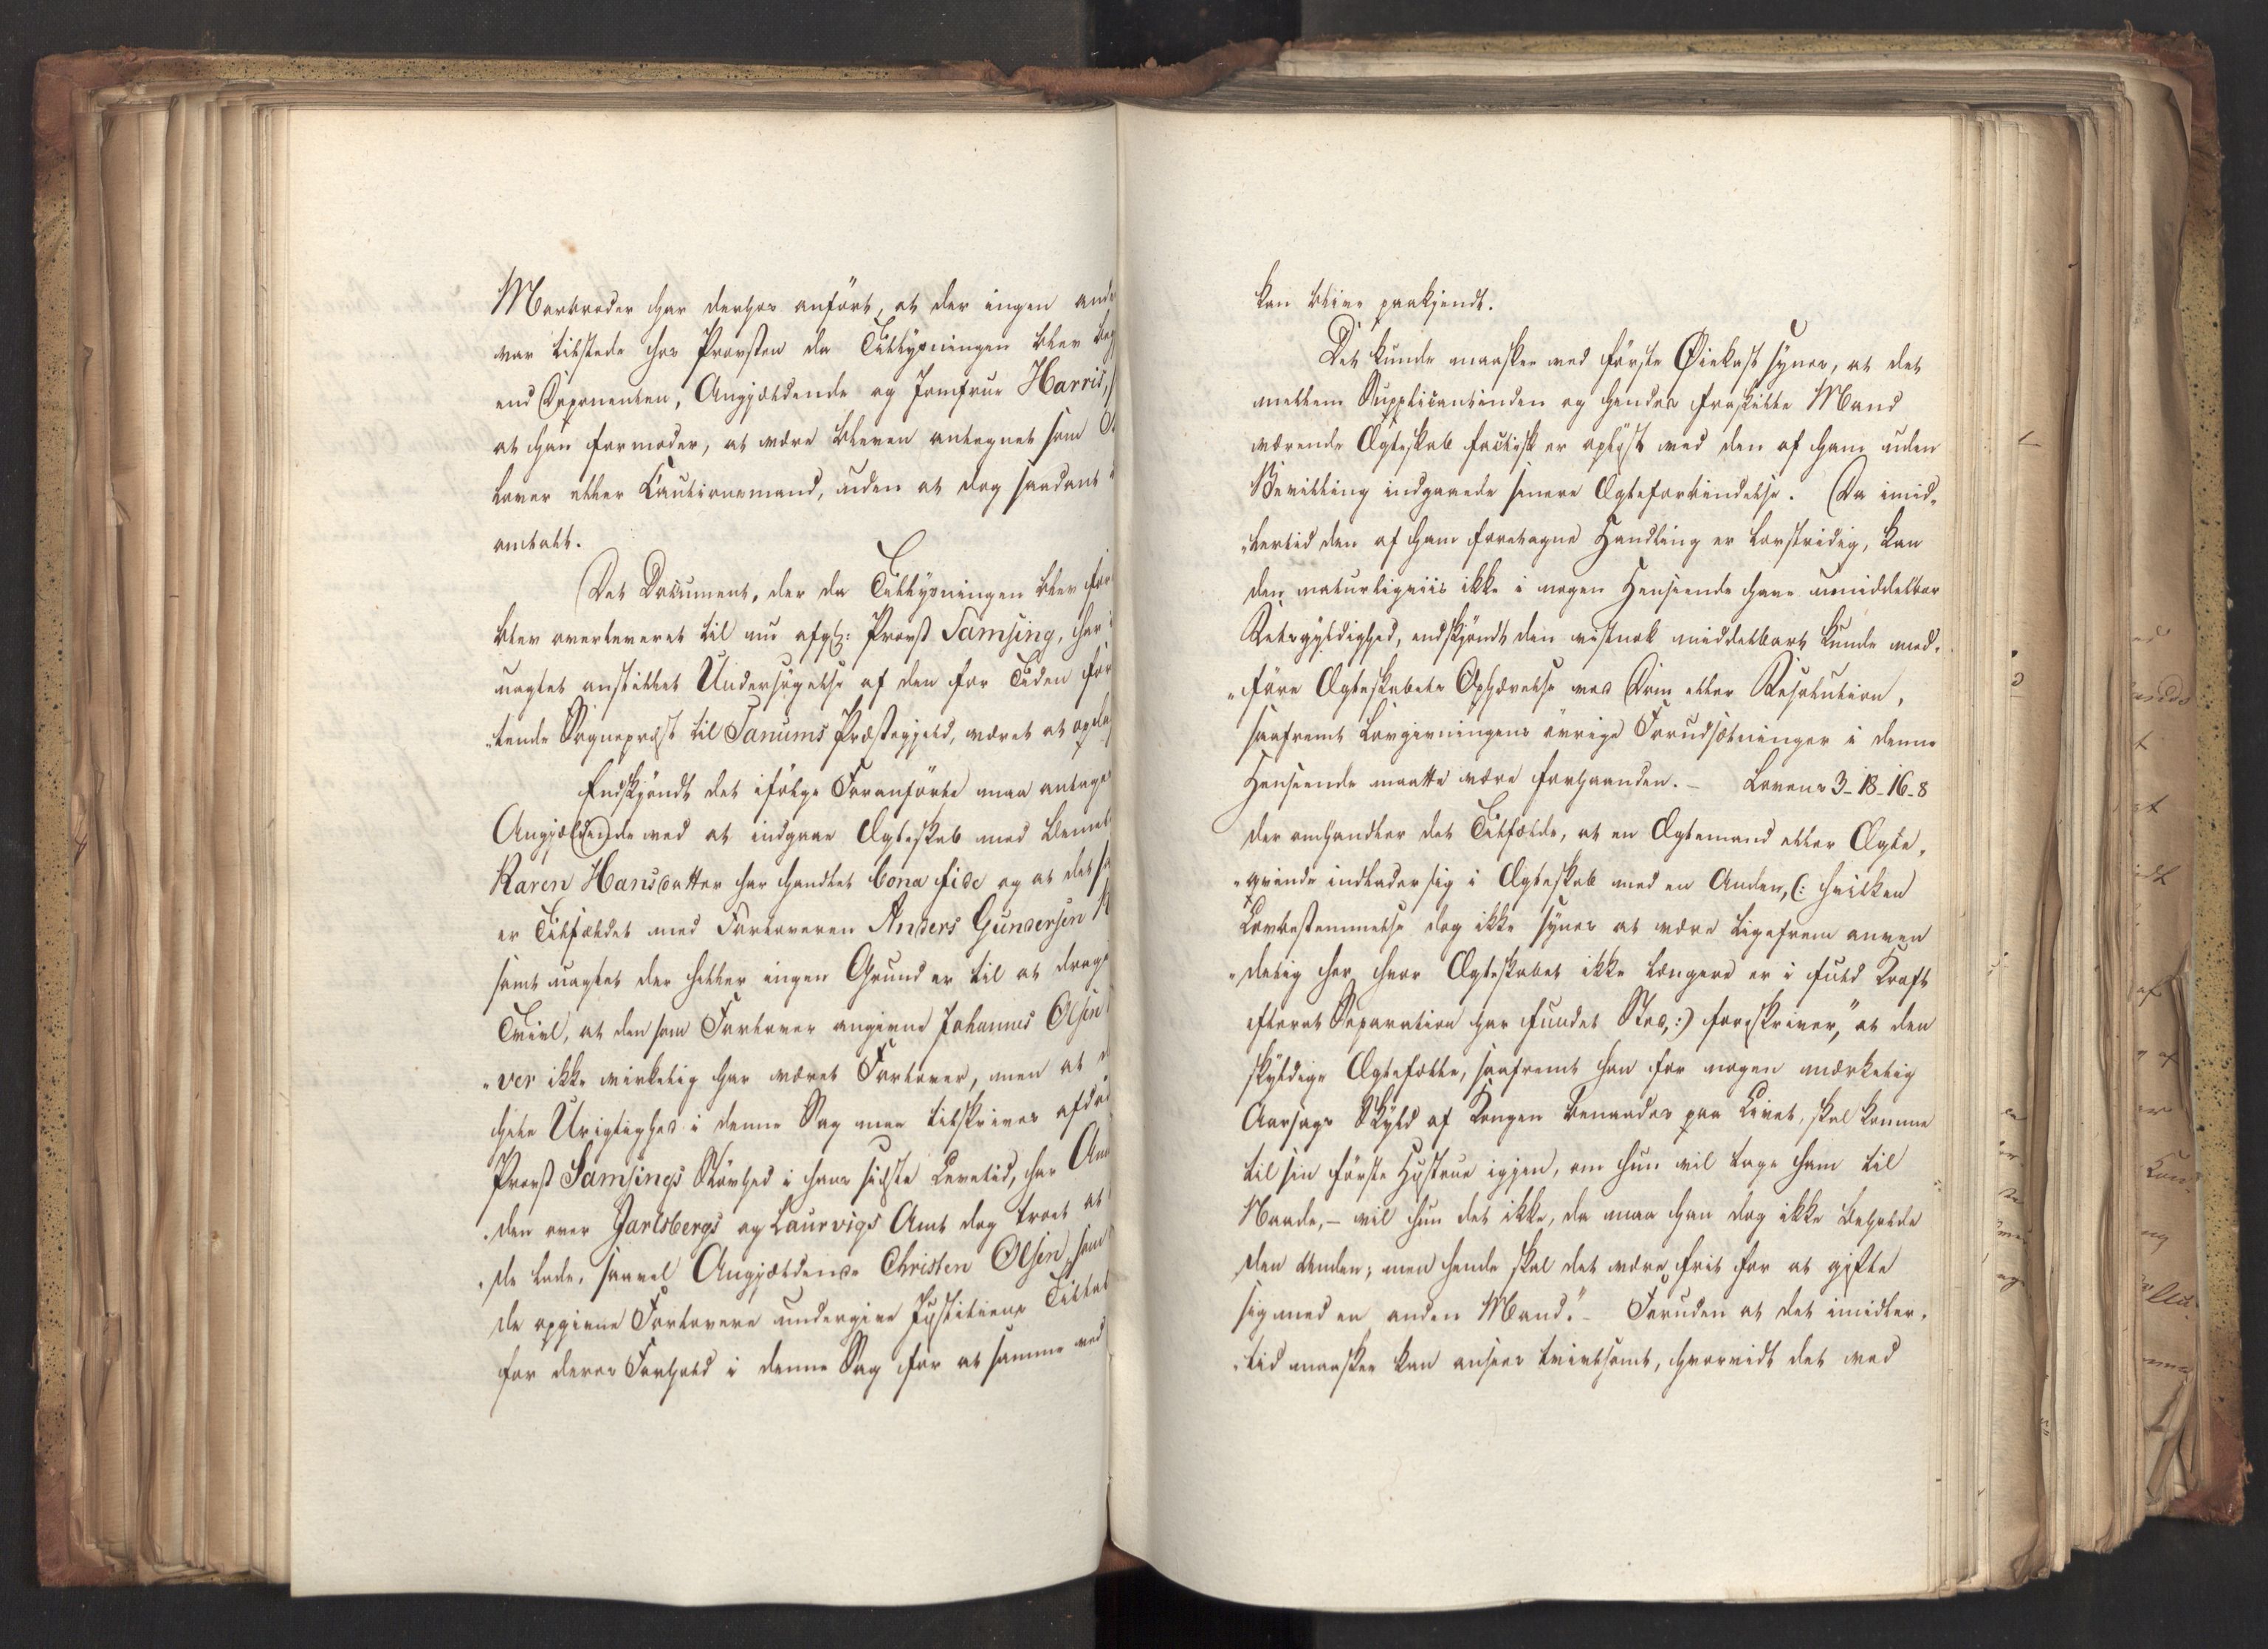 Markroder har derhos anført, at der ingen andr
var tilstede hos Provsten da Tillysningen blev beg
end Deponenten, Angjældende og Jomfrue Harris,
at han formoder, at være bleven antegnet som
lover eller Cautionsmand, uden at dog saadant
omtalt.
Det Document, der da Tillysningen blev for
blev overleveret til nu afg: Provst Samsing, har
uagtet anstillet Undersøgelse af den for Tiden for
„tende Sognepræst til Tanums Præstegjeld, været at opda
Endskjøndt det ifølge Foranførte maa antages
Angjældende ved at indgaae Ægteskab med Bemel
Karen Hansdatter har handlet bona fide og at det sa
er Tilfældet med Forloveren Anders Gundersen
samt uagtet der heller ingen Grund er til at drage
Tvivl, at den som Forlover angivne Johannes Olsen
„ver ikke virkelig har været Forlover, men at
hele Urigtighed i denne Sag maa tilskrives afdød
Provst Samsings Sløvhed i hans sidste Levetid, har Am
„den over Jarlsbergs og Laurvigs Amt dog troet at
„de lade, saavel Angjældende Christen Olsen, som
de opgivne Forlovere undergive Justitiens Tiltal
for deres Forhold i denne Sag for at samme ved
kan blive paakjendt.
Det kunde maaskee ved første Øiekast synes, at det
mellem Supplicantinden og hendes fraskilte Mand
værende Ægteskab factisk er opløst ved den af ham uden
Bevilling indgaaede senere Ægteforbindelse. Da imid„
„lertid den af ham foretagne Handling er lovstridig, kan
den naturligviis ikke i nogen Henseende have umiddelbar
Retsgyldighed, endskjøndt den vistnok middelbart kunde med„
„føre Ægteskabets Ophævelse ved Dom eller Resolution,
saafremt Lovgivningens øvrige Forudsætninger i denne
Henseende maatte være forhaanden. – Lovens 3-18-16-8
der omhandler det Tilfælde, at en Ægtemand eller Ægte„
„qvinde indlader sig i Ægteskab med en Anden, (: hvilken
Lovbestemmelse dog ikke synes at være ligefrem anven
„delig her, hvor Ægteskabet ikke længere er i fuld Kraft
efterat Separation har fundet Sted, :) foreskriver, „at den
skyldige Ægtefælle, saafremt han for nogen mærkelig
Aarsags Skyld af Kongen benaades paa Livet, skal komme
til sin første Hustrue igjen, om hun vil tage ham til
Naade, – vil hun det ikke, da maa han dog ikke beholde
den Anden; men hende skal det være frit for at gifte
sig med en anden Mand." – Foruden at det imidler„
„tid maaskee kan ansees tvivlsomt, hvorvidt det ved